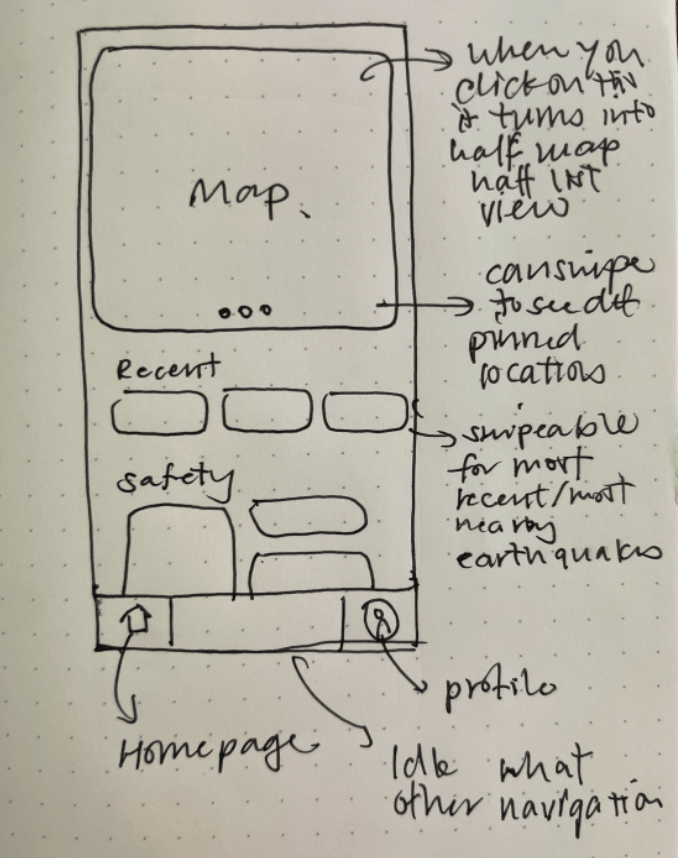 Map.
Recent
Safety
when you
click on this
it turns into
half map
half list
view
can swipe
to see diff
pinned
locations
swipeable
for most
recent/most
nearby
earthquakes
profile
Homepage
Idk what
other navigation